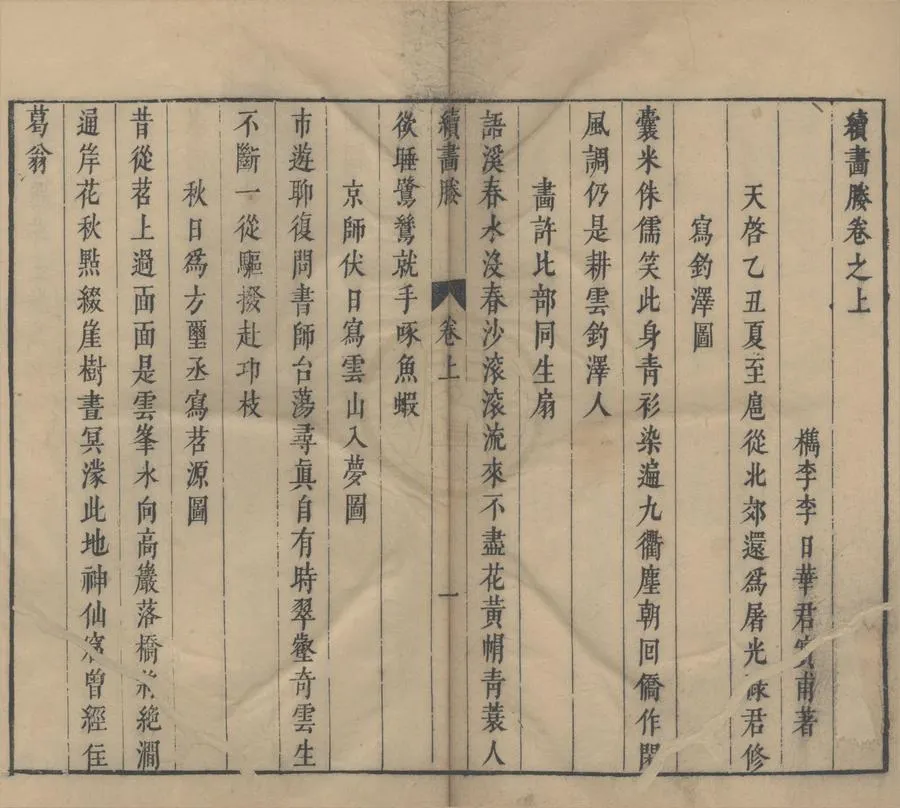 續畫媵卷之上
檇李李日華君實甫著
天啓乙丑夏至扈從北郊還爲屠光祿君修
寫釣澤圖
囊米侏儒笑此身青衫染遍九衢塵朝回僑作閒
風調仍是耕雲釣澤人
畫許比部同生扇
語溪春水沒春沙滾滾流來不盡花黃帽青蓑人
續畫媵 卷上 一
欲睡鷺鶿就手啄魚蝦
京師伏日寫雲山入夢圖
市遊聊復問書師台蕩尋眞自有時翠壑奇雲生
不斷一從驅撥赴卭枝
秋日爲方璽丞寫苕源圖
昔從苕上過面面是雲峯水向高巖落橋將絶澗
通岸花秋點綴崖樹晝冥濛此地神仙窟曾經住
葛翁